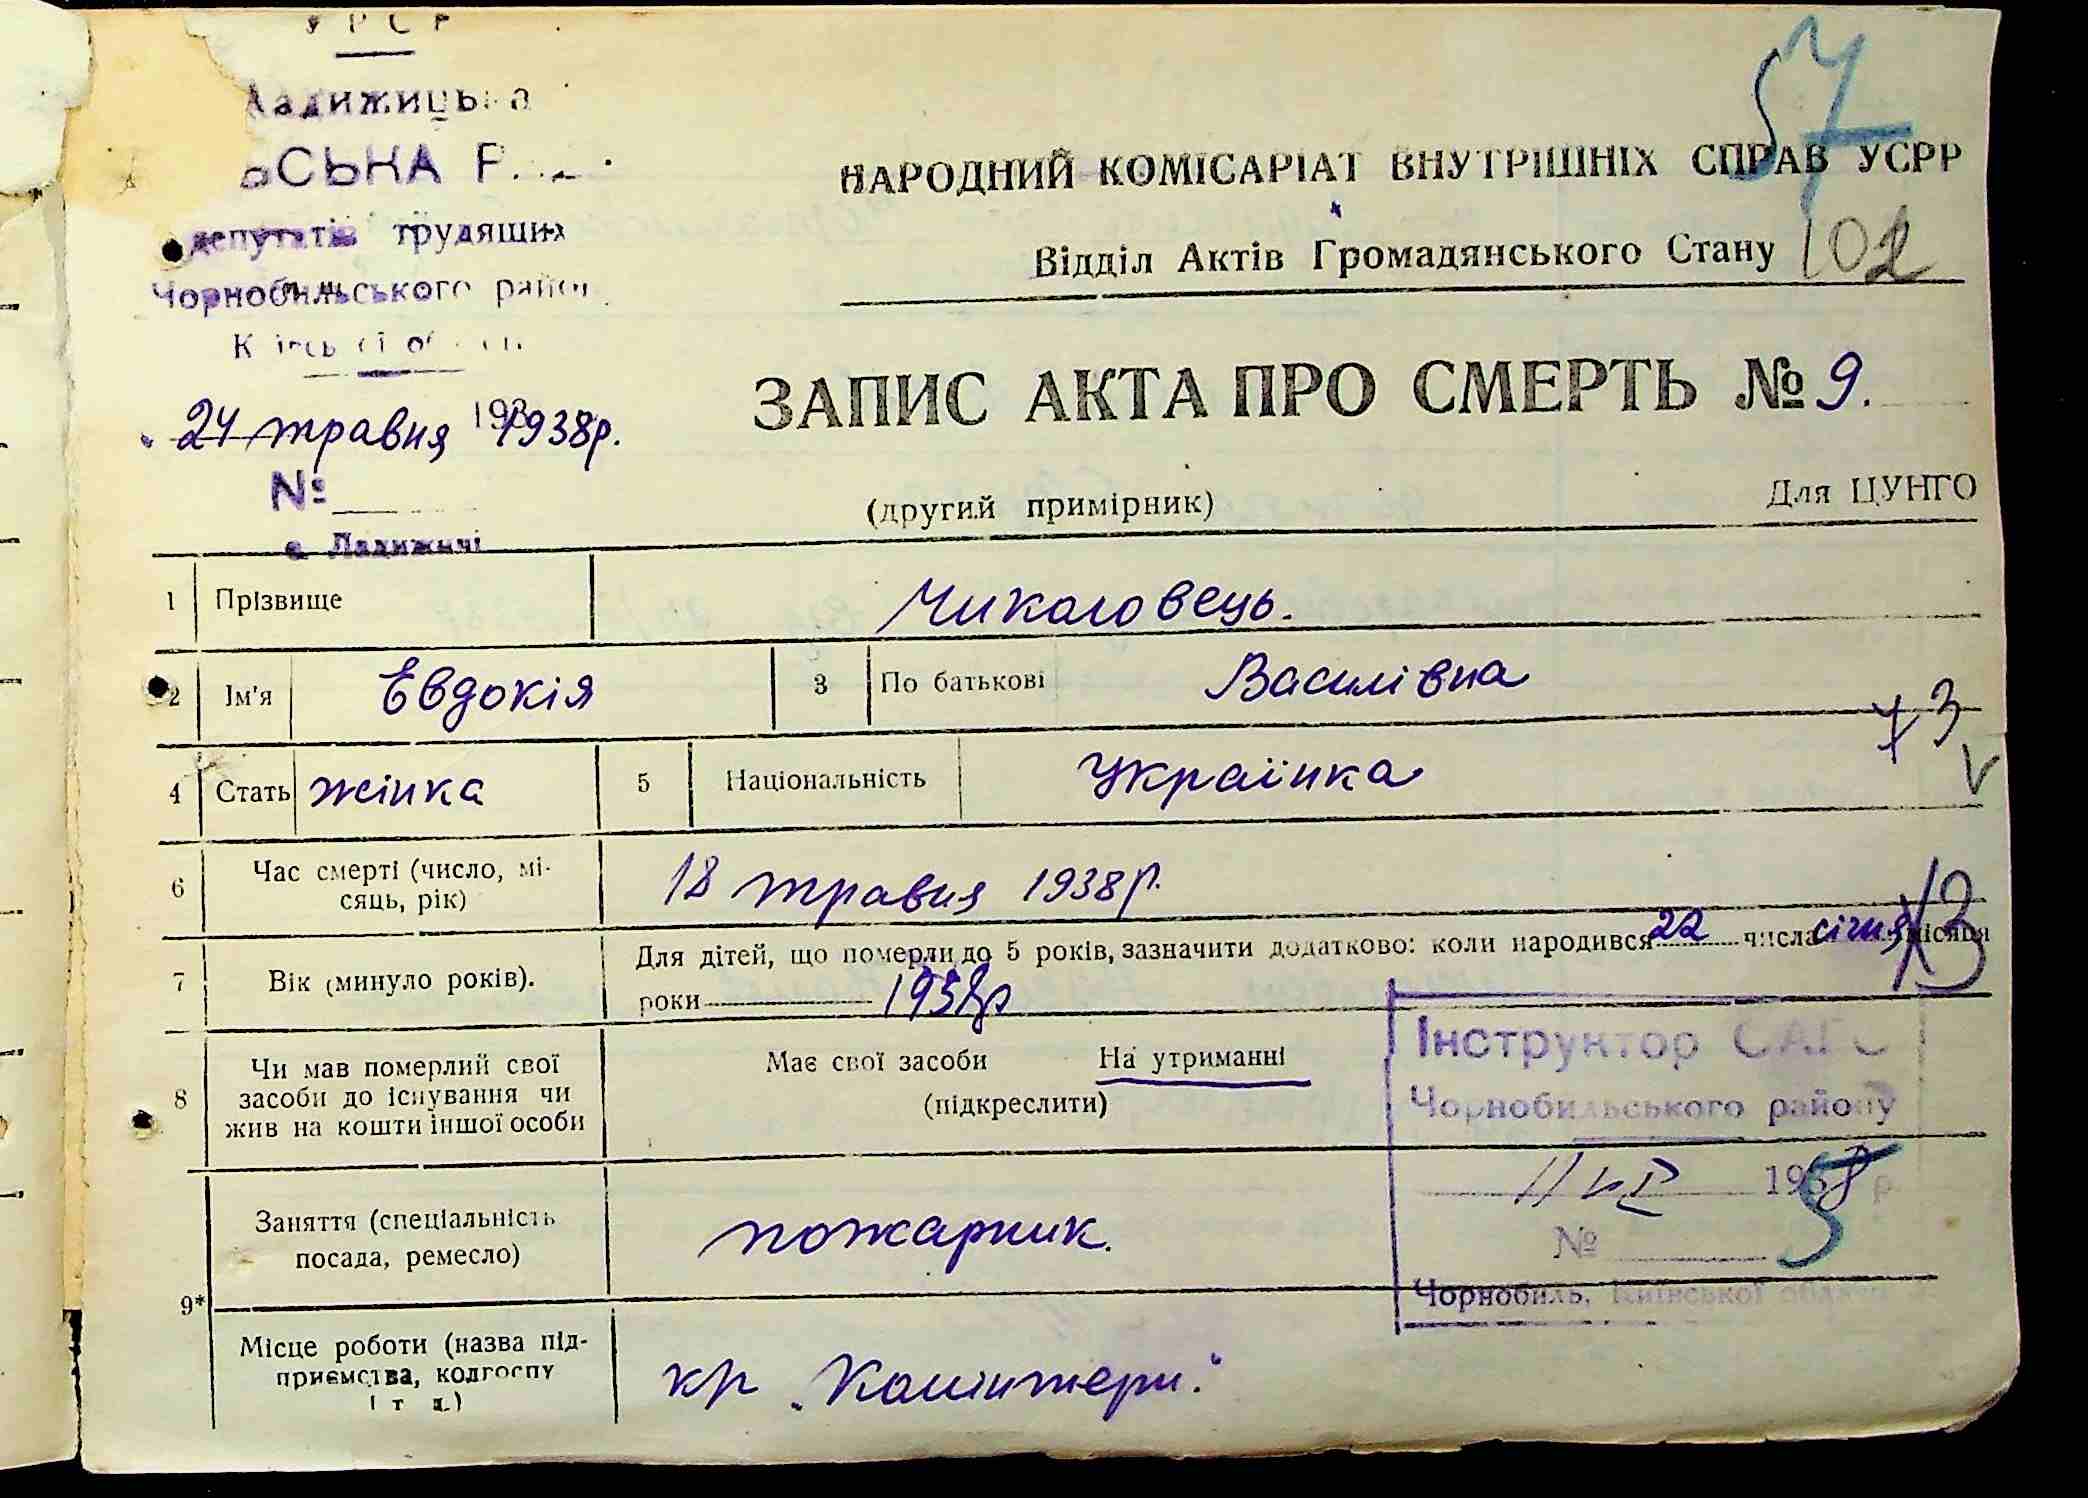 УРСР
Ладижицька
ЬСЬКА
депутатів трудящих
Чорнобильського район
Київської області
24 травня 1938р.
№
с. Ладижичі
57
НАРОДНИЙ КОМІСАРІАТ ВНУТРІШНІХ СПРАВ УСРР
Відділ Актів Громадянського Стану 102
ЗАПИС АКТА ПРО СМЕРТЬ № 9.
(другий примірник) Для ЦУНГО
1 Прізвище Чикаловець.
2 Ім'я Евдокія 3 По батькові Василівна
73
4 Стать жінка 5 Національність Українка
V
6 Час смерті (число, мі-
сяць, рік) 18 травня 1938р.
7 Вік (минуло років). Для дітей, що померли до 5 років, зазначити додатково: коли народився 22 числа січня місяця
роки 1938р
8 Чи мав померлий свої
засоби до існування чи
жив на кошти іншої особи
Має свої засоби На утриманні
(підкреслити)
Інструктор САГС
Чорнобильського району
11 VI 1938 р
№
Чорнобиль, Київської області
9* Заняття (спеціальність
посада, ремесло) пожарник.
Місце роботи (назва під-
приємства, колгоспу
і т д.) кр „Комінтерн."